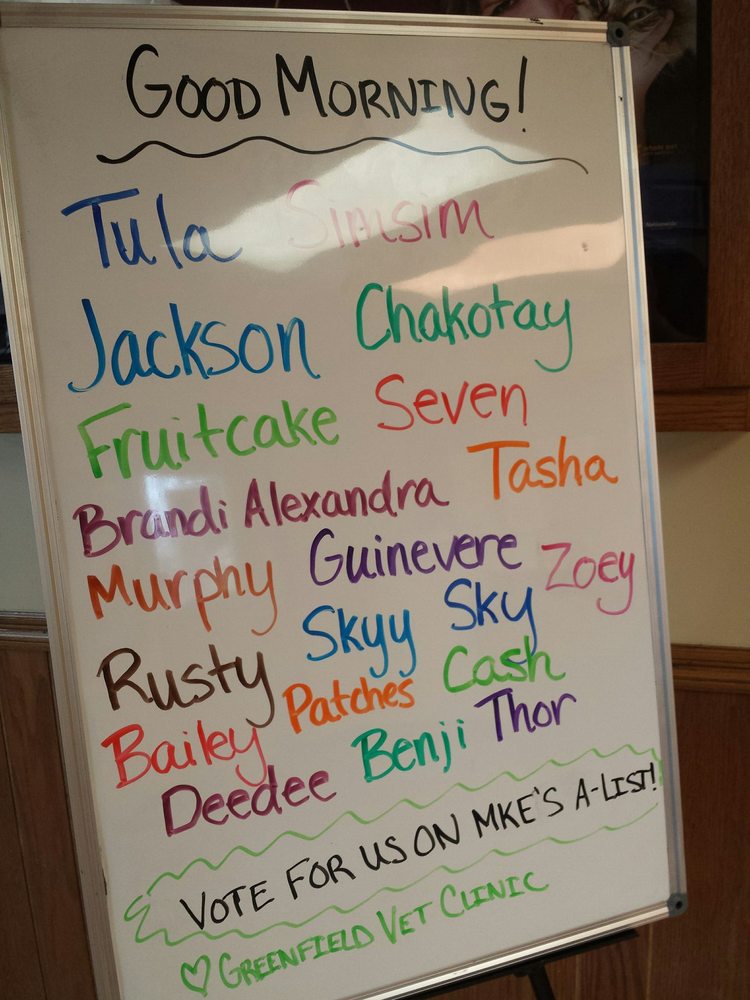 GOOD MORNING!
Tula Simsim
Jackson Chakotay
Fruitcake Seven
Brandi Alexandra Tasha
Murphy Guinevere Zoey
Rusty Skyy Sky
Patches Cash
Bailey Benji Thor
Deedee
VOTE FOR US ON MKE'S A-LIST!
♡ GREENFIELD VET CLINIC